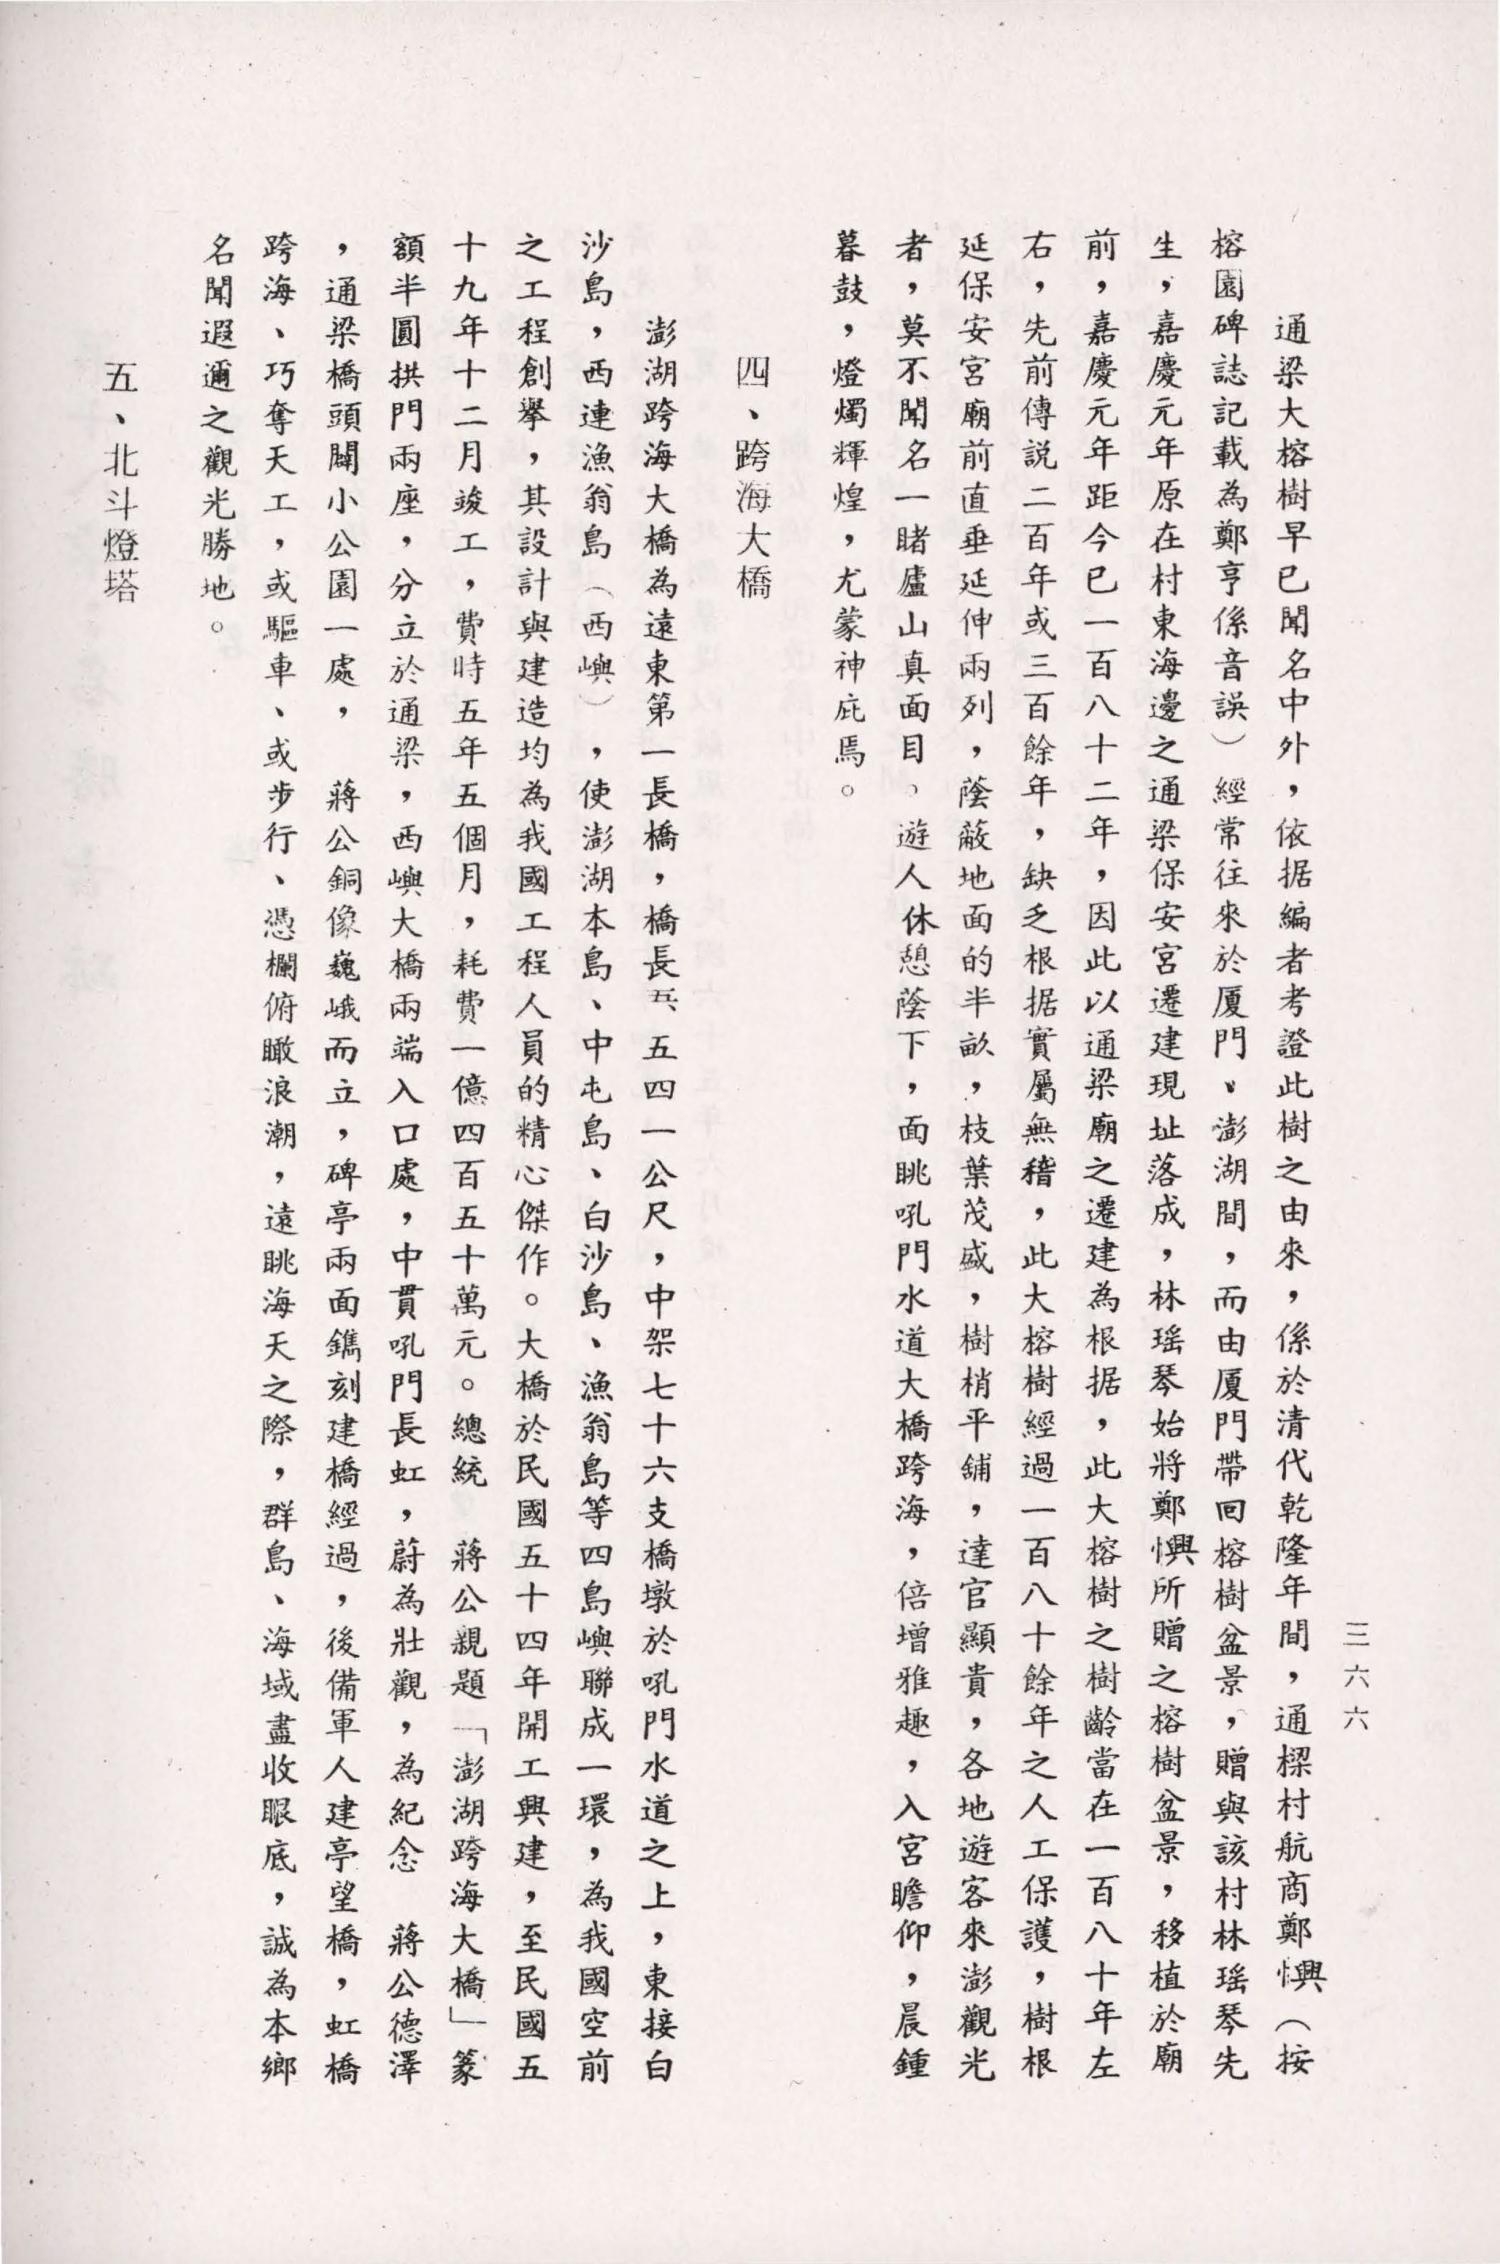 三六六
通梁大榕樹早已聞名中外，依据編者考證此樹之由來，係於清代乾隆年間，通樑村航商鄭懊（按
榕園碑誌記載為鄭亨係音誤）經常往來於厦門、澎湖間，而由厦門帶回榕樹盆景，贈與該村林瑤琴先
生，嘉慶元年原在村東海邊之通梁保安宮遷建現址落成，林瑤琴始將鄭懊所贈之榕樹盆景，移植於廟
前，嘉慶元年距今已一百八十二年，因此以通梁廟之遷建為根据，此大榕樹之樹齡當在一百八十年左
右，先前傳説二百年或三百餘年，缺乏根据實屬無稽，此大榕樹經過一百八十餘年之人工保護，樹根
延保安宮廟前直垂延伸兩列，蔭蔽地面的半畝，枝葉茂盛，樹梢平舖，達官顯貴，各地遊客來澎觀光
者，莫不聞名一睹盧山真面目。遊人休憩蔭下，面眺吼門水道大橋跨海，倍增雅趣，入宮瞻仰，晨鍾
暮鼓，燈燭輝煌，尤蒙神庇焉。
四、跨海大橋
澎湖跨海大橋為遠東第一長橋，橋長五、五四一公尺，中架七十六支橋墩於吼門水道之上，東接白
沙島，西連漁翁島（西嶼），使澎湖本島、中屯島、白沙島、漁翁島等四島嶼聯成一環，為我國空前
之工程創擧，其設計與建造均為我國工程人員的精心傑作。大橋於民國五十四年開工興建，至民國五
十九年十二月竣工，費時五年五個月，耗費一億四百五十萬元。總統　蔣公親題「澎湖跨海大橋」篆
額半圓拱門兩座，分立於通梁，西嶼大橋兩端入口處，中貫吼門長虹，蔚為壯觀，為紀念　蔣公德澤
，通梁橋頭闢小公園一處，　蔣公銅像巍峨而立，碑亭兩面鐫刻建橋經過，後備軍人建亭望橋，虹橋
跨海、巧奪天工，或驅車、或步行、憑欄俯瞰浪潮，遠眺海天之際，群島、海域盡收眼底，誠為本鄉
名聞遐邇之觀光勝地。
五、北斗燈塔